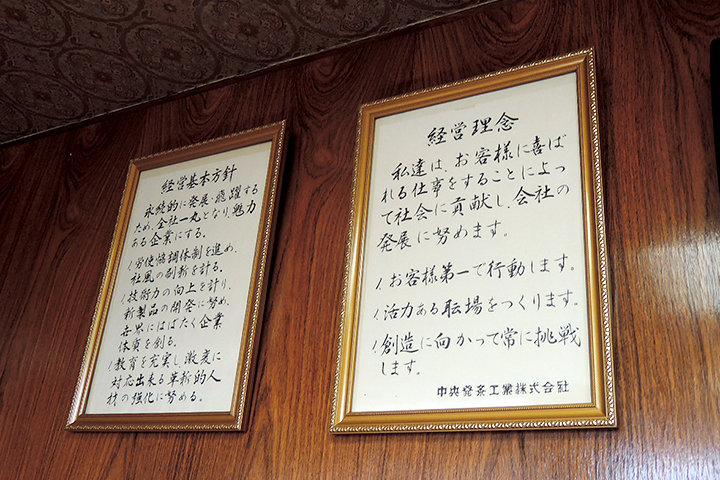 経営基本方針
永続的に発展・飛躍する
ため、全社一丸となり、魅力
ある企業にする。
1. 労使協調体制を進め、
社風の刷新を計る。
1. 技術力の向上を計り、
新製品の開発に努め、
世界にはばたく企業
体質を創る。
1. 教育を充実し、激変に
対応出来る革新的人
材の強化に努める。
経営理念
私達は、お客様に喜ば
れる仕事をすることによっ
て社会に貢献し、会社の
発展に努めます。
1. お客様第一で行動します。
1. 活力ある職場をつくります。
1. 創造に向かって常に挑戦
します。
中央発条工業株式会社